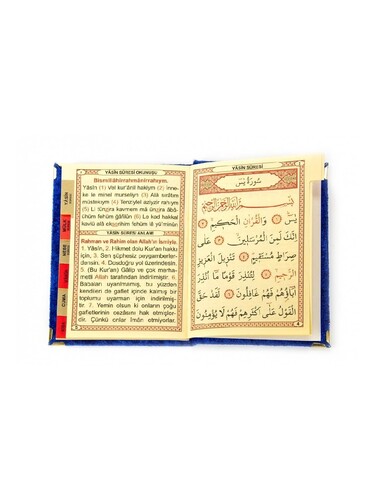 YÂSÎN SÛRESİ OKUNUŞU
Bismillâhirrahmânirrahîym.
Yâsîn (1) Vel kur'ânil hakiym (2) inne-
ke le minel murseliyn (3) Alâ sırâtım
müstekıym (4) Tenziylel aziyzir rahıym
(5) Li tünzira kavmem mâ ünzira âbâ-
ühüm fehüm ğâfilûn (6) Le kad hakkal
kavlü alâ ekserihim fehüm lâ yü'minûn
YÂSÎN SÛRESİ ANLAMI
Rahman ve Rahim olan Allah'ın İsmiyle.
1. Yâsîn, 2. Hikmet dolu Kur'an hakkı
için, 3. Sen şüphesiz peygamberler-
densin. 4. Dosdoğru yol üzerindesin.
5. (Bu Kur'an) Gâlip ve çok merha-
metli Allah tarafından indirilmiştir. 6.
Babaları uyarılmamış, bu yüzden
kendileri de gaflet içinde kalmış bir
toplumu uyarman için indirilmiş-
tir. 7. Yemin olsun ki onların çoğu
gafletlerinin cezasını hak etmişler-
dir. Çünkü onlar îmân etmiyorlar.
YÂSİN
CUMA
YÂSÎN SÛRESİ
سُورَةُ يٰسٓ
بِسْمِ اللهِ الرَّحْمٰنِ الرَّحِيمِ
يٰسٓ ﴿١﴾ وَالْقُرْاٰنِ الْحَكِيمِ ﴿٢﴾
اِنَّكَ لَمِنَ الْمُرْسَلِينَ ﴿٣﴾ عَلٰى
صِرَاطٍ مُسْتَقِيمٍ ﴿٤﴾ تَنْزِيلَ الْعَزِيزِ
الرَّحِيمِ ﴿٥﴾ لِتُنْذِرَ قَوْمًا مَٓا اُنْذِرَ
اٰبَٓاؤُ۬هُمْ فَهُمْ غَافِلُونَ ﴿٦﴾ لَقَدْ حَقَّ
الْقَوْلُ عَلٰٓى اَكْثَرِهِمْ فَهُمْ لَا يُؤْمِنُونَ